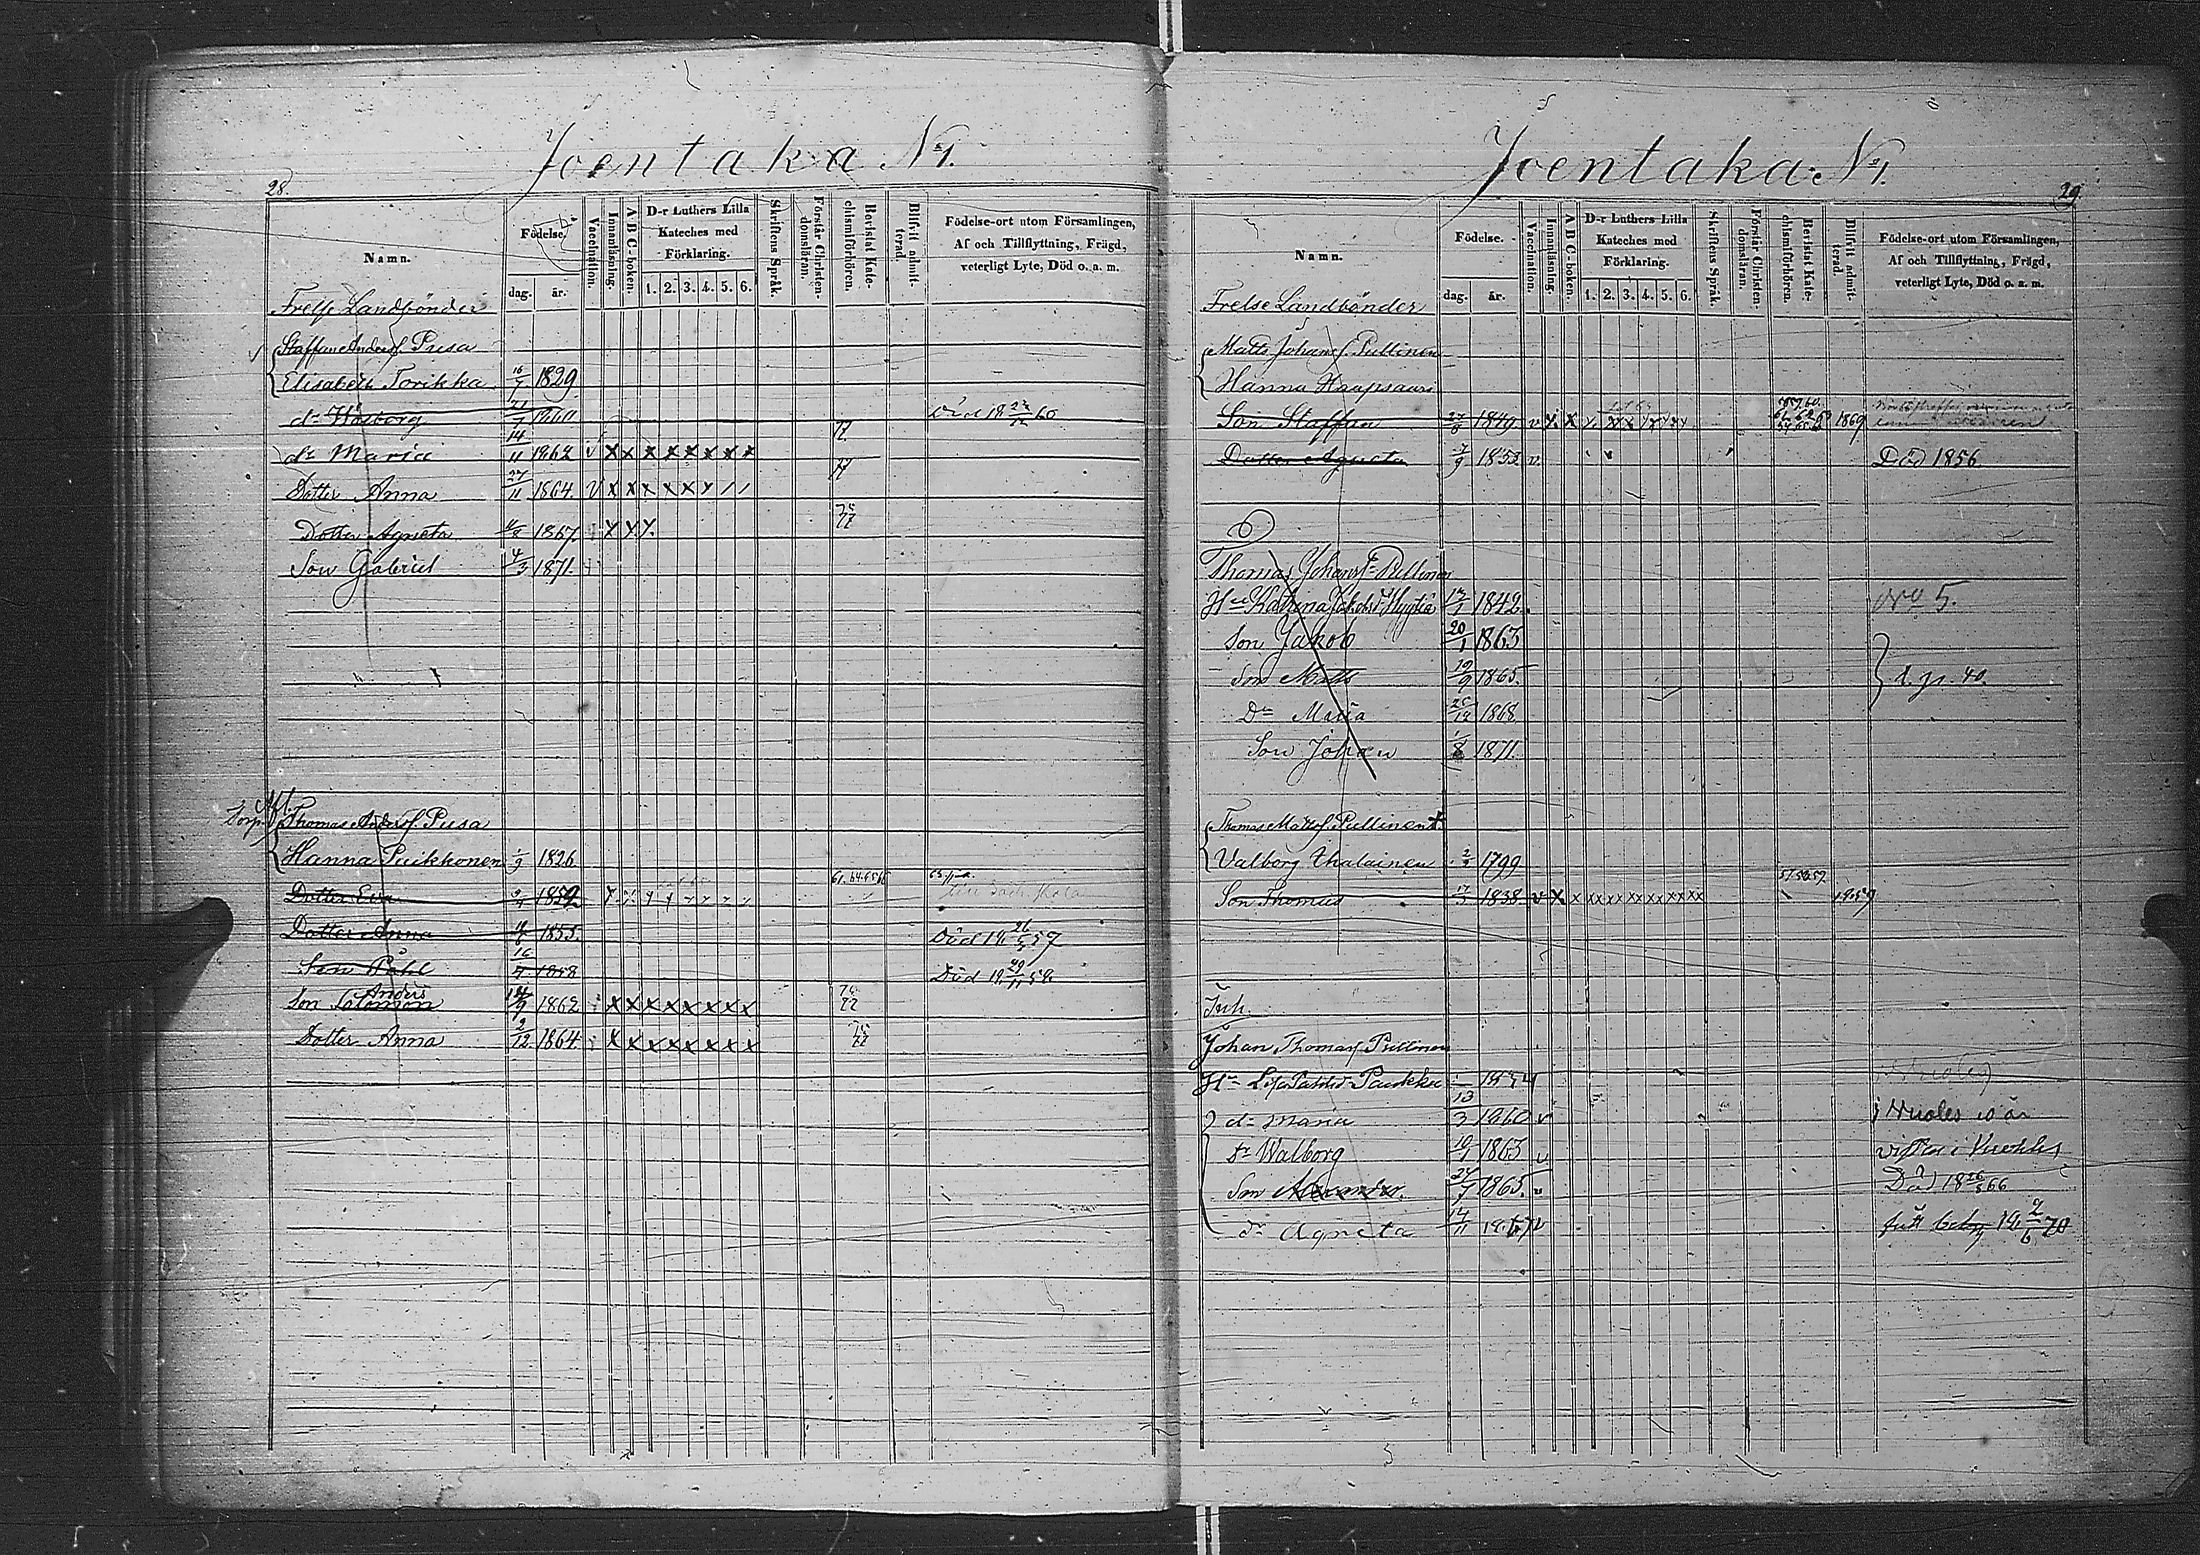 Joentaka № 1.
28
Namn.
Födelse.
dag.
år.
Vaccination.
Innanläsning.
A B C-boken.
D-r Luthers Lilla
Kateches med
Förklaring.
1. 2. 3. 4. 5. 6.
Skriftens Språk.
Förstår Christen-
domsläran.
Bevistat Kate-
chismiförhören.
Blifvit admit-
terad.
Födelse-ort utom Församlingen,
Af och Tillflyttning, Frägd,
veterligt Lyte, Död o. a. m.
Frelse Landbönder
Staffan Andersf Pusa
Elisabeth Torikka 16/7 1829
dr Walborg 1860 Död 18 60
dr Maria 14/11 1862 v x x x x x x x x 77
Dotter Anna 27/11 1864 v x x x x x x / / 77
Dotter Agneta 1867 75 77
Son Gabriel 4/3 1871.
Thomas Andersf Pusa
Hanna Puikkonen 1/9 1826
Dotter Eva 1852 61. 64. 65
Dotter Anna 1855. Död 18 26/5 57
Son Påhl 16/7 1858 Död 18 29/11 58
Anders
Son Salomon 1862 x x x x x x x x
Dotter Anna 2/12 1864 x x x x x x x x
Joentaka № 1.
29
Namn.
Födelse.
dag.
år.
Vaccination.
Innanläsning.
A B C-boken.
D-r Luthers Lilla
Kateches med
Förklaring.
1. 2. 3. 4. 5. 6.
Skriftens Språk.
Förstår Christen-
domsläran.
Bevistat Kate-
chismiförhören.
Blifvit admit-
terad.
Födelse-ort utom Församlingen,
Af och Tillflyttning, Frägd,
veterligt Lyte, Död o. a. m.
Frelse Landbönder
Matts Johansf. Pullinen
Hanna Haapsaari
Son Staffan 1849 v x x 1869
Dotter Agneta 7/9 1853 v. Död 1856
Thomas Johansf Pullinen
Hu Katrina Jakobsd Hyytiä 1842. No 5.
Son Jakob 20/1 1863
Son Matts 19/9 1865. l. p. 40.
Dr Maria 1868
Son Johan 1/8 1871.
Thomas Mattsf Pullinen +
Valborg Ihalainen 1799
Son Thomas 1838 v x x x x x x x x x x x 1859
Inh.
Johan Thomasf Pullinen
Hu Lisa Pahlsd Paukku
dr Maria 13/3 1860 v i Nuoles 10 år
dr Walborg 10/1 1863 v
Son Alexander. 24/7 1865. v Död 18 66
dr Agneta 14/11 1867 v 18 2/6 70